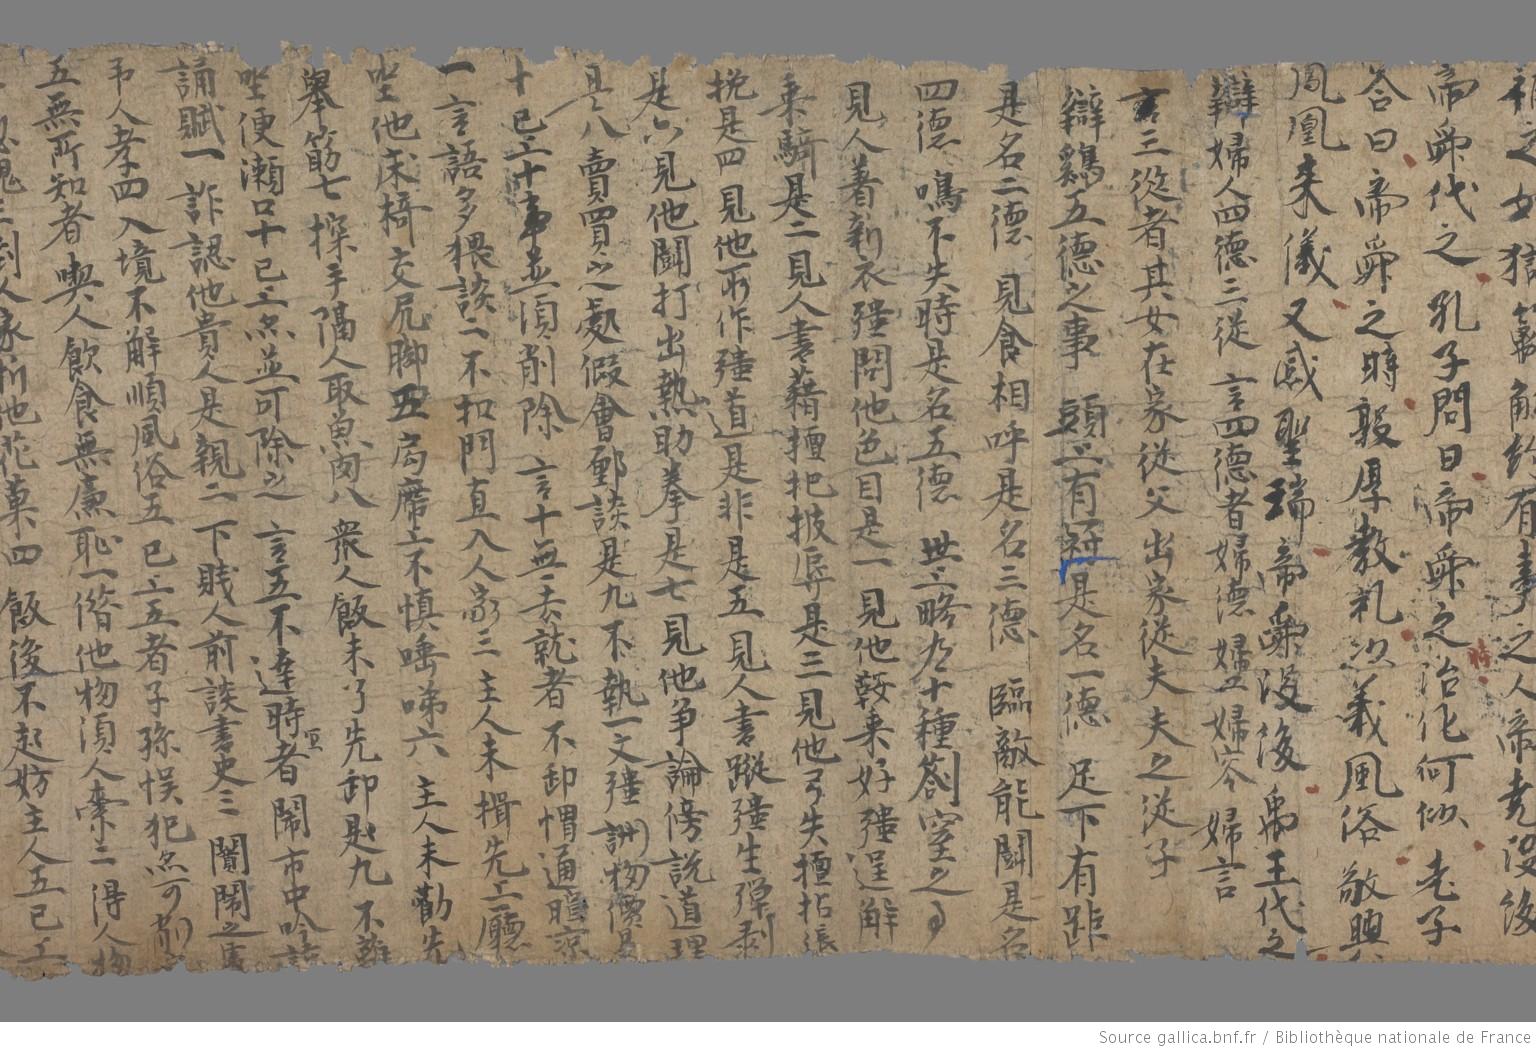 之女 有事之人帝堯沒後
帝舜代之 孔子問曰帝舜之治化何似 老子
答曰帝舜之時敦厚教礼以義風俗敬興
鳳凰来儀又感聖瑞帝舜沒後 禹王代之
辯婦人四德三從 言四德者婦德婦 婦容婦言
言三從者其女在家從父出家從夫夫之從子
辯鷄五德之事 頭上有 是名一德 足下有距
是名二德 見食相呼是名三德 臨敵能鬪是名
四德 鳴不失時是名五德 世上略 十種劄室之
見人著新衣強問他色目是一見他鞍来好強逞解
乗騎是二見人書藉擅把披 是三見他弓失擅拈張
挽是四見他所作強道是非是五見人書蹤強生彈剥
是六見他鬪打出熱助拳是七見他争論傍說道理
是八賣買之處假會鄄談是九不執一文強 物價是
十已上十事並須削除 言十無去就者 不卸帽通暄凉
一言語多猥談二不扣門直入人家三主人未揖先上廳
坐他床椅交尻脚五局席上不慎唾涕六主人未勸先
擧筯七探手隔人取魚肉八衆人飯未了先卸是九不離
坐便漱口十已上並可除之 言五不達時者 鬧市中吟詩
誦賦一詐認他貴人是親二下賎人前談書史三鬧之
人孝四入境不解順風俗五已上五者子孫悮犯 可
五無所知者喫人飲食無廉恥一借他物須人索二得人物
三到人家折他花菓四飯後不起妨主人五已上